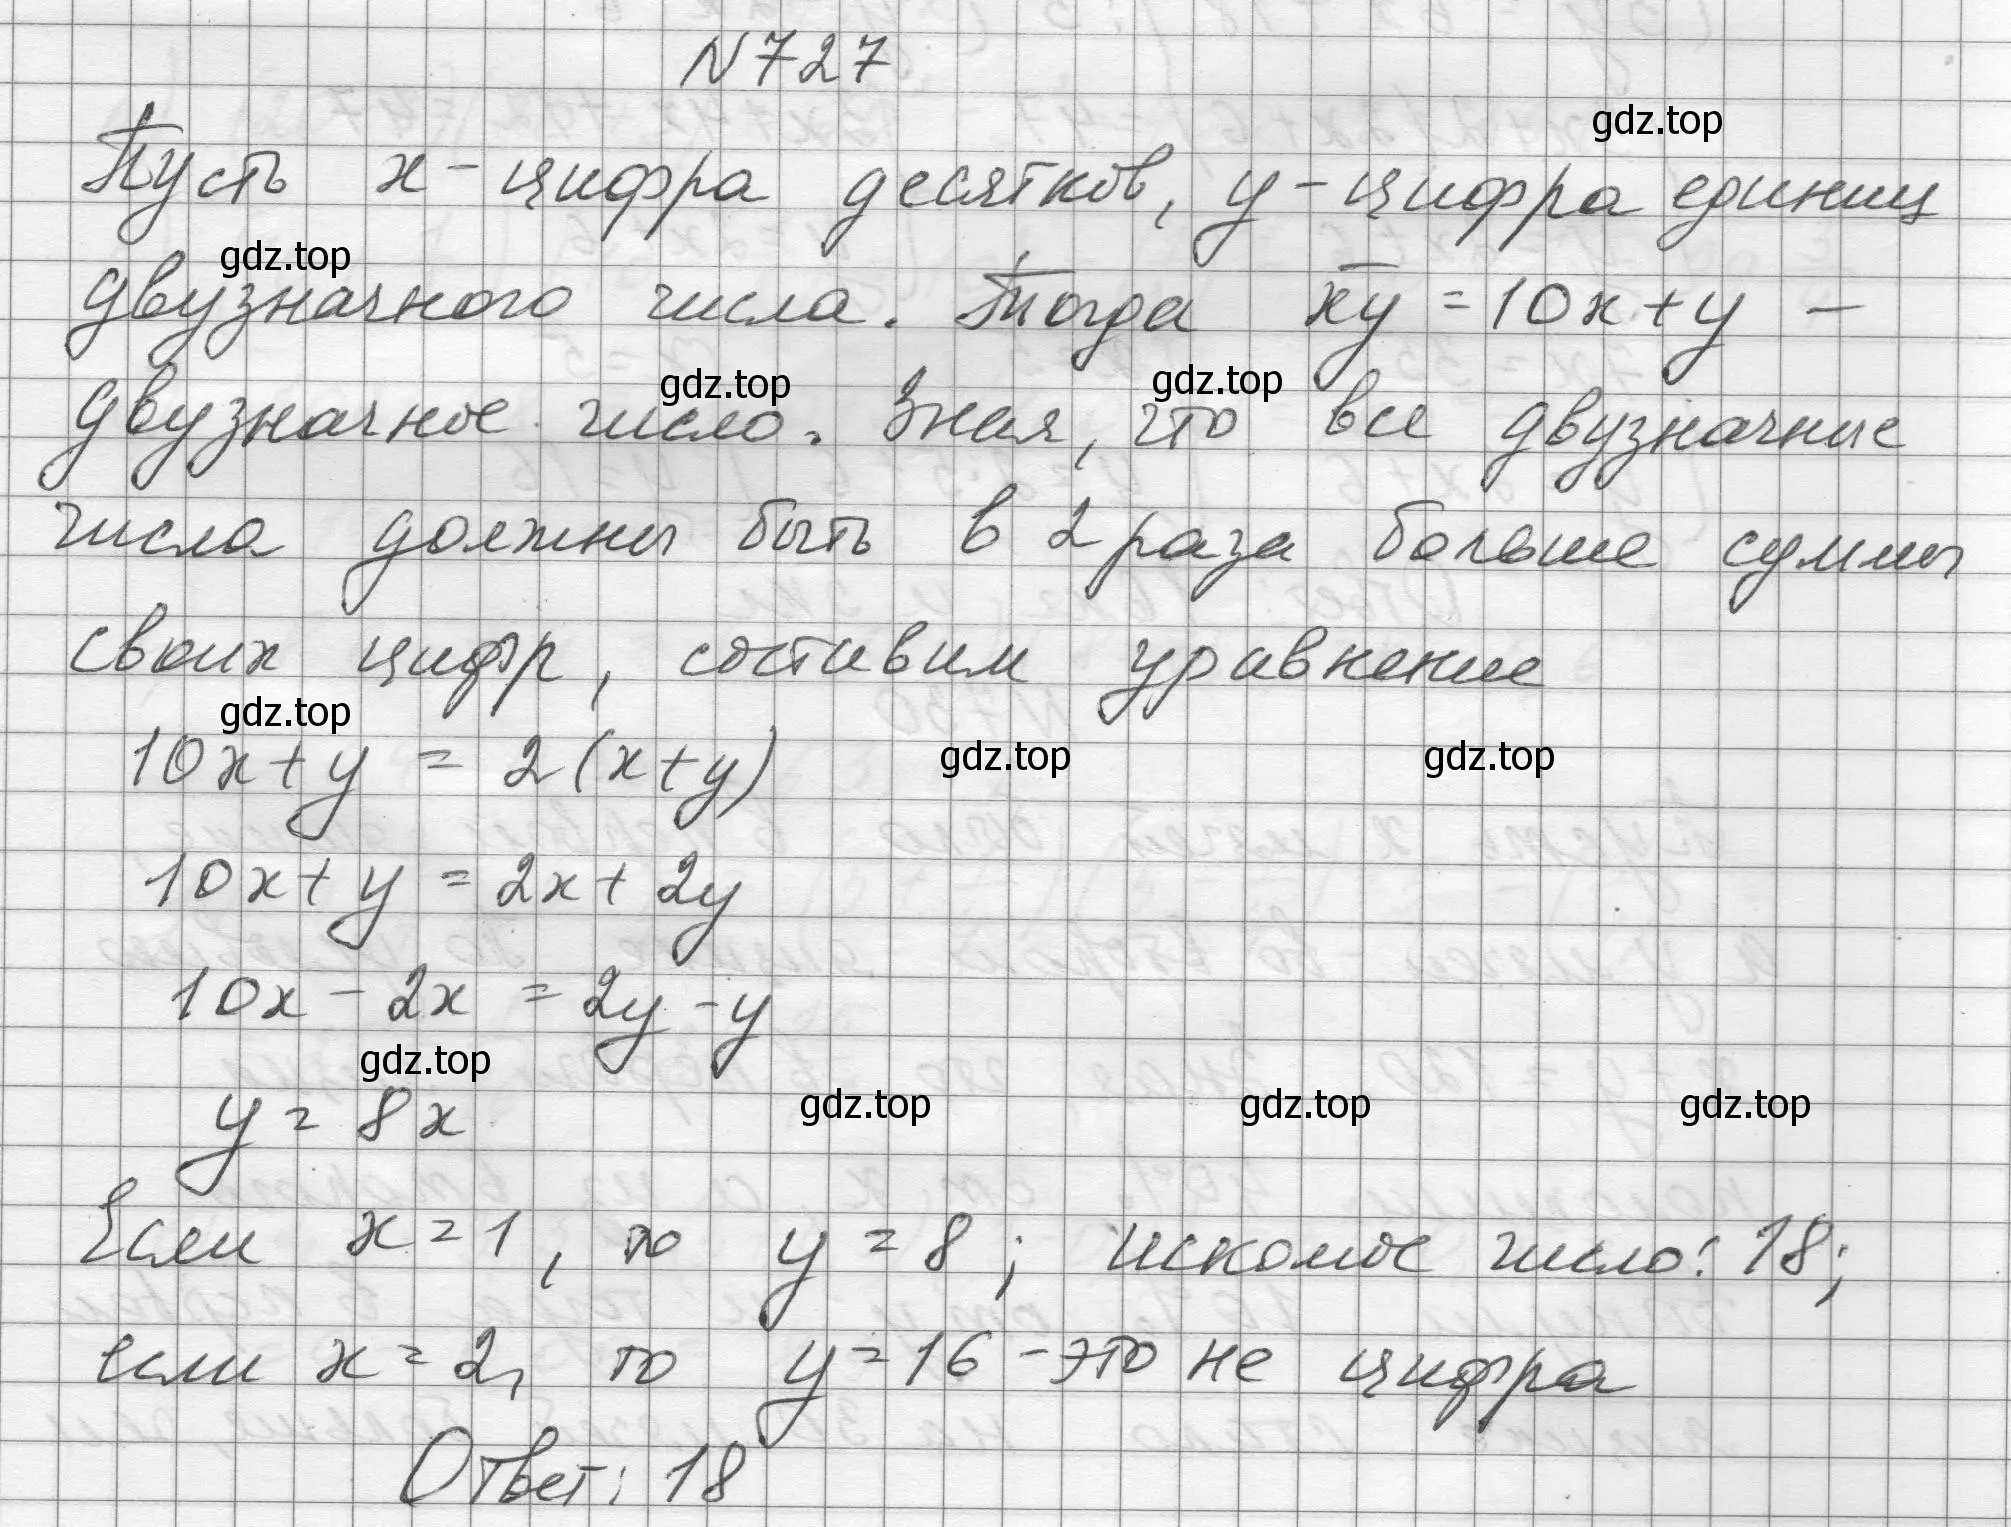 N727
gdz.top
Пусть x - цифра десятков, y - цифра единиц
gdz.top
двузначного числа. Тогда x̅y̅ = 10x + y -
gdz.top gdz.top
двузначное число. Зная, что все двузначные
числа должны быть в 2 раза больше суммы
своих цифр, составим уравнение
gdz.top
10x + y = 2(x + y)
gdz.top gdz.top
10x + y = 2x + 2y
10x - 2x = 2y - y
gdz.top
y = 8x
gdz.top gdz.top gdz.top
Если x = 1, то y = 8; искомое число: 18;
если x = 2, то y = 16 - это не цифра
Ответ: 18